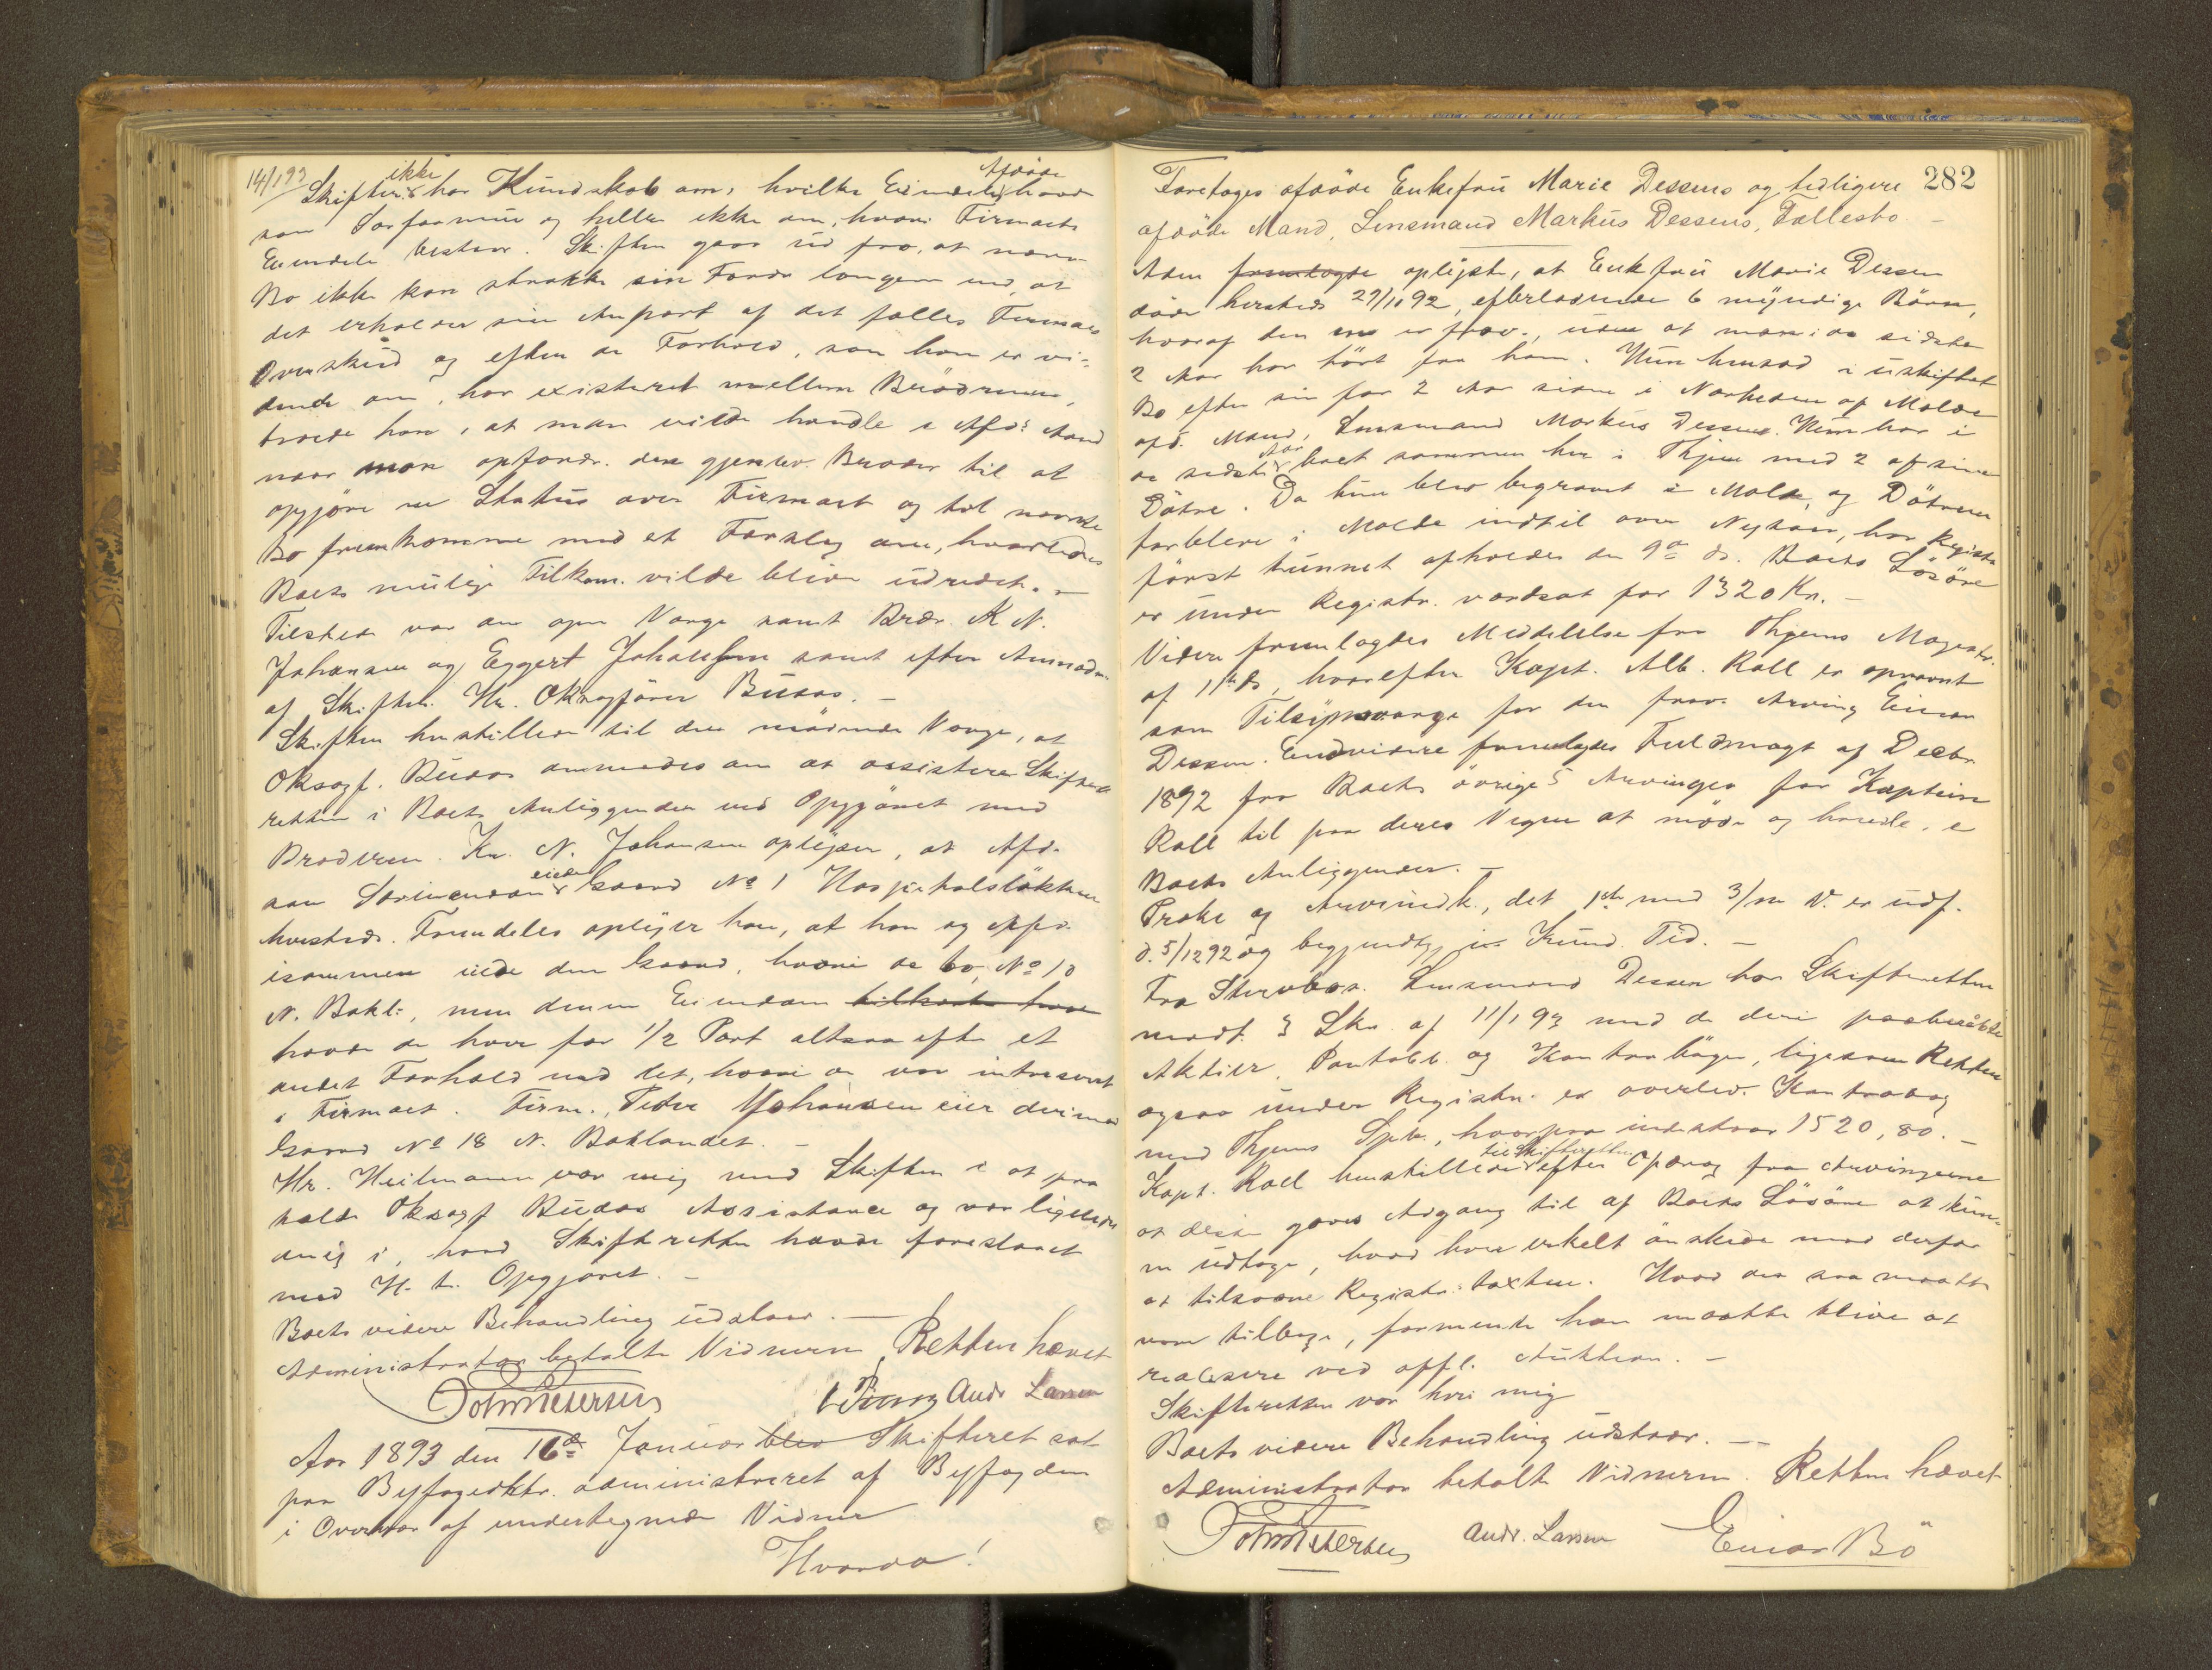 14/1 93
Skifter ikke har Kundskab om, hvilke Eiendele Afdøde havde
som Særformue og heller ikke om, hvori Firmaets
Eiendele bestaar. Skiften gaar ud fra, at nærv.
Bo ikke kan strække sin Fordr længere end, at
det erholder sin Anpart af det fælles Firmaes
Overskud og efter de Forhold, som han er vi-
dende om, har existeret mellem Brødrene,
troede han, at man vilde handle i Afd's Aand
naar man opfordr. den gjenlev. Broder til at
opgjøre en Status over Firmaet og til nærv.
Bo fremkomme med et Forslag om, hvorledes
Boets mulige Tilkom. vilde blive udredet. –
Tilstede var den opn Værge samt Brdr. K N.
Johansen og Eggert Johansen samt efter Anmodn.
af Skifter. Hr. Oksagfører Buaas. –
Skiften henstillede til den mødende Værge, at
Oksagf. Buaas anmodes om at assistere Skifte-
retten i Boets Anliggender ved Opgjøret med
Broderen. Kr. N. Johansen oplyser, at Afd.
som Særeiendom eiede Gaard № 1 Hospitalsløkken
hersteds. Fremdeles oplyser han, at han og Afd.
isammen eiede den Gaard, hvori de bo, № 10
N. Bakl., men denne Eiendom
havde de hver for 1/2 Part altsaa efter et
andet Forhold end det, hvori de var interesseret
i Firmaet. Firm. Peder Johansen eier derimod
Gaard № 18 N. Baklandet. –
Hr. Heilmann var enig med Skiften i at paa
kalde Oksagf Buaas Assistance og var ligeledes
enig i, hvad Skifteretten havde foreslaaet
med H. t. Opgjøret. –
Boets videre Behandling udstaar. –
Administrator betalte Vidnerne. Retten hævet
Andr Larsen
Aar 1893 den 16de Januar blev Skifteret sat
paa Byfogedktr. administreret af Byfogden
i Overvær af undertegnede Vidner
Hvorda!
282
Foretages afdøde Enkefru Marie Dessens og tidligere
afdøde Mand, Lensmand Markus Dessens, Fællesbo –
Adm fremlagde oplyste, at Enkefru Marie Dessen
døde hersteds 29/11 92, efterladende 6 myndige Børn,
hvoraf den ene er frav., uden at man i de sidste
2 Aar har hørt fra ham. Hun hensad i uskiftet
Bo efter sin for 2 Aar siden i Nærheden af Molde
afd. Mand, Lensmand Markus Dessen. Hun har i
de sidste Aar boet sammen her i Thjem med 2 af sine
Døtre. Da hun blev begravet i Molde, og Døtrene
forbleve i Molde indtil over Nytaar, har Registr
først kunnet afholdes den 9de ds. Boets Løsøre
er under Registr. værdsat for 1320 Kr. –
Videre fremlagdes Meddelelse fra Thjems Magistr.
af 11te ds, hvorefter Kapt. Alb. Roll er opnævnt
som Tilsynsværge for den frav. Arving Einar
Dessen. Endvidere fremlagdes Fuldmagt af Decbr.
1892 fra Boets øvrige 5 Arvinger for Kaptein
Roll til paa deres Vegne at møde og handle i
Boets Anliggender. –
Prokl og Arveindk., det 1ste med 3/m V. er udf.
d. 5/12 92 og begjendtgj in Kund. Tid. –
Fra Stervbos. Lensmand Dessen har Skifteretten
modt. 3 Skr. af 11/1 93 med de deri paaberaabte
Aktier, Pantobl. og Kontrabøger, ligesom Retten
ogsaa under Registr. er overlev. Kontrabog
med Thjems Spb., hvorpaa indestaar 1520,80. –
Kapt. Roll henstillede til Skifteretten efter Opdrag fra Arvingerne
at disse gaves Adgang til af Boets Løsøre at kun-
ne udtage, hvad hver enkelt ønskede mod derfor
at tilsvare Registr.taxten. Hvad der saa maatte
være tilbage, formente han maatte blive at
realisere ved offl. Auktion. –
Skifteretten var heri enig
Boets videre Behandling udstaar. –
Administrator betalte Vidnerne. Retten hævet
Andr. Larsen Einar Bö